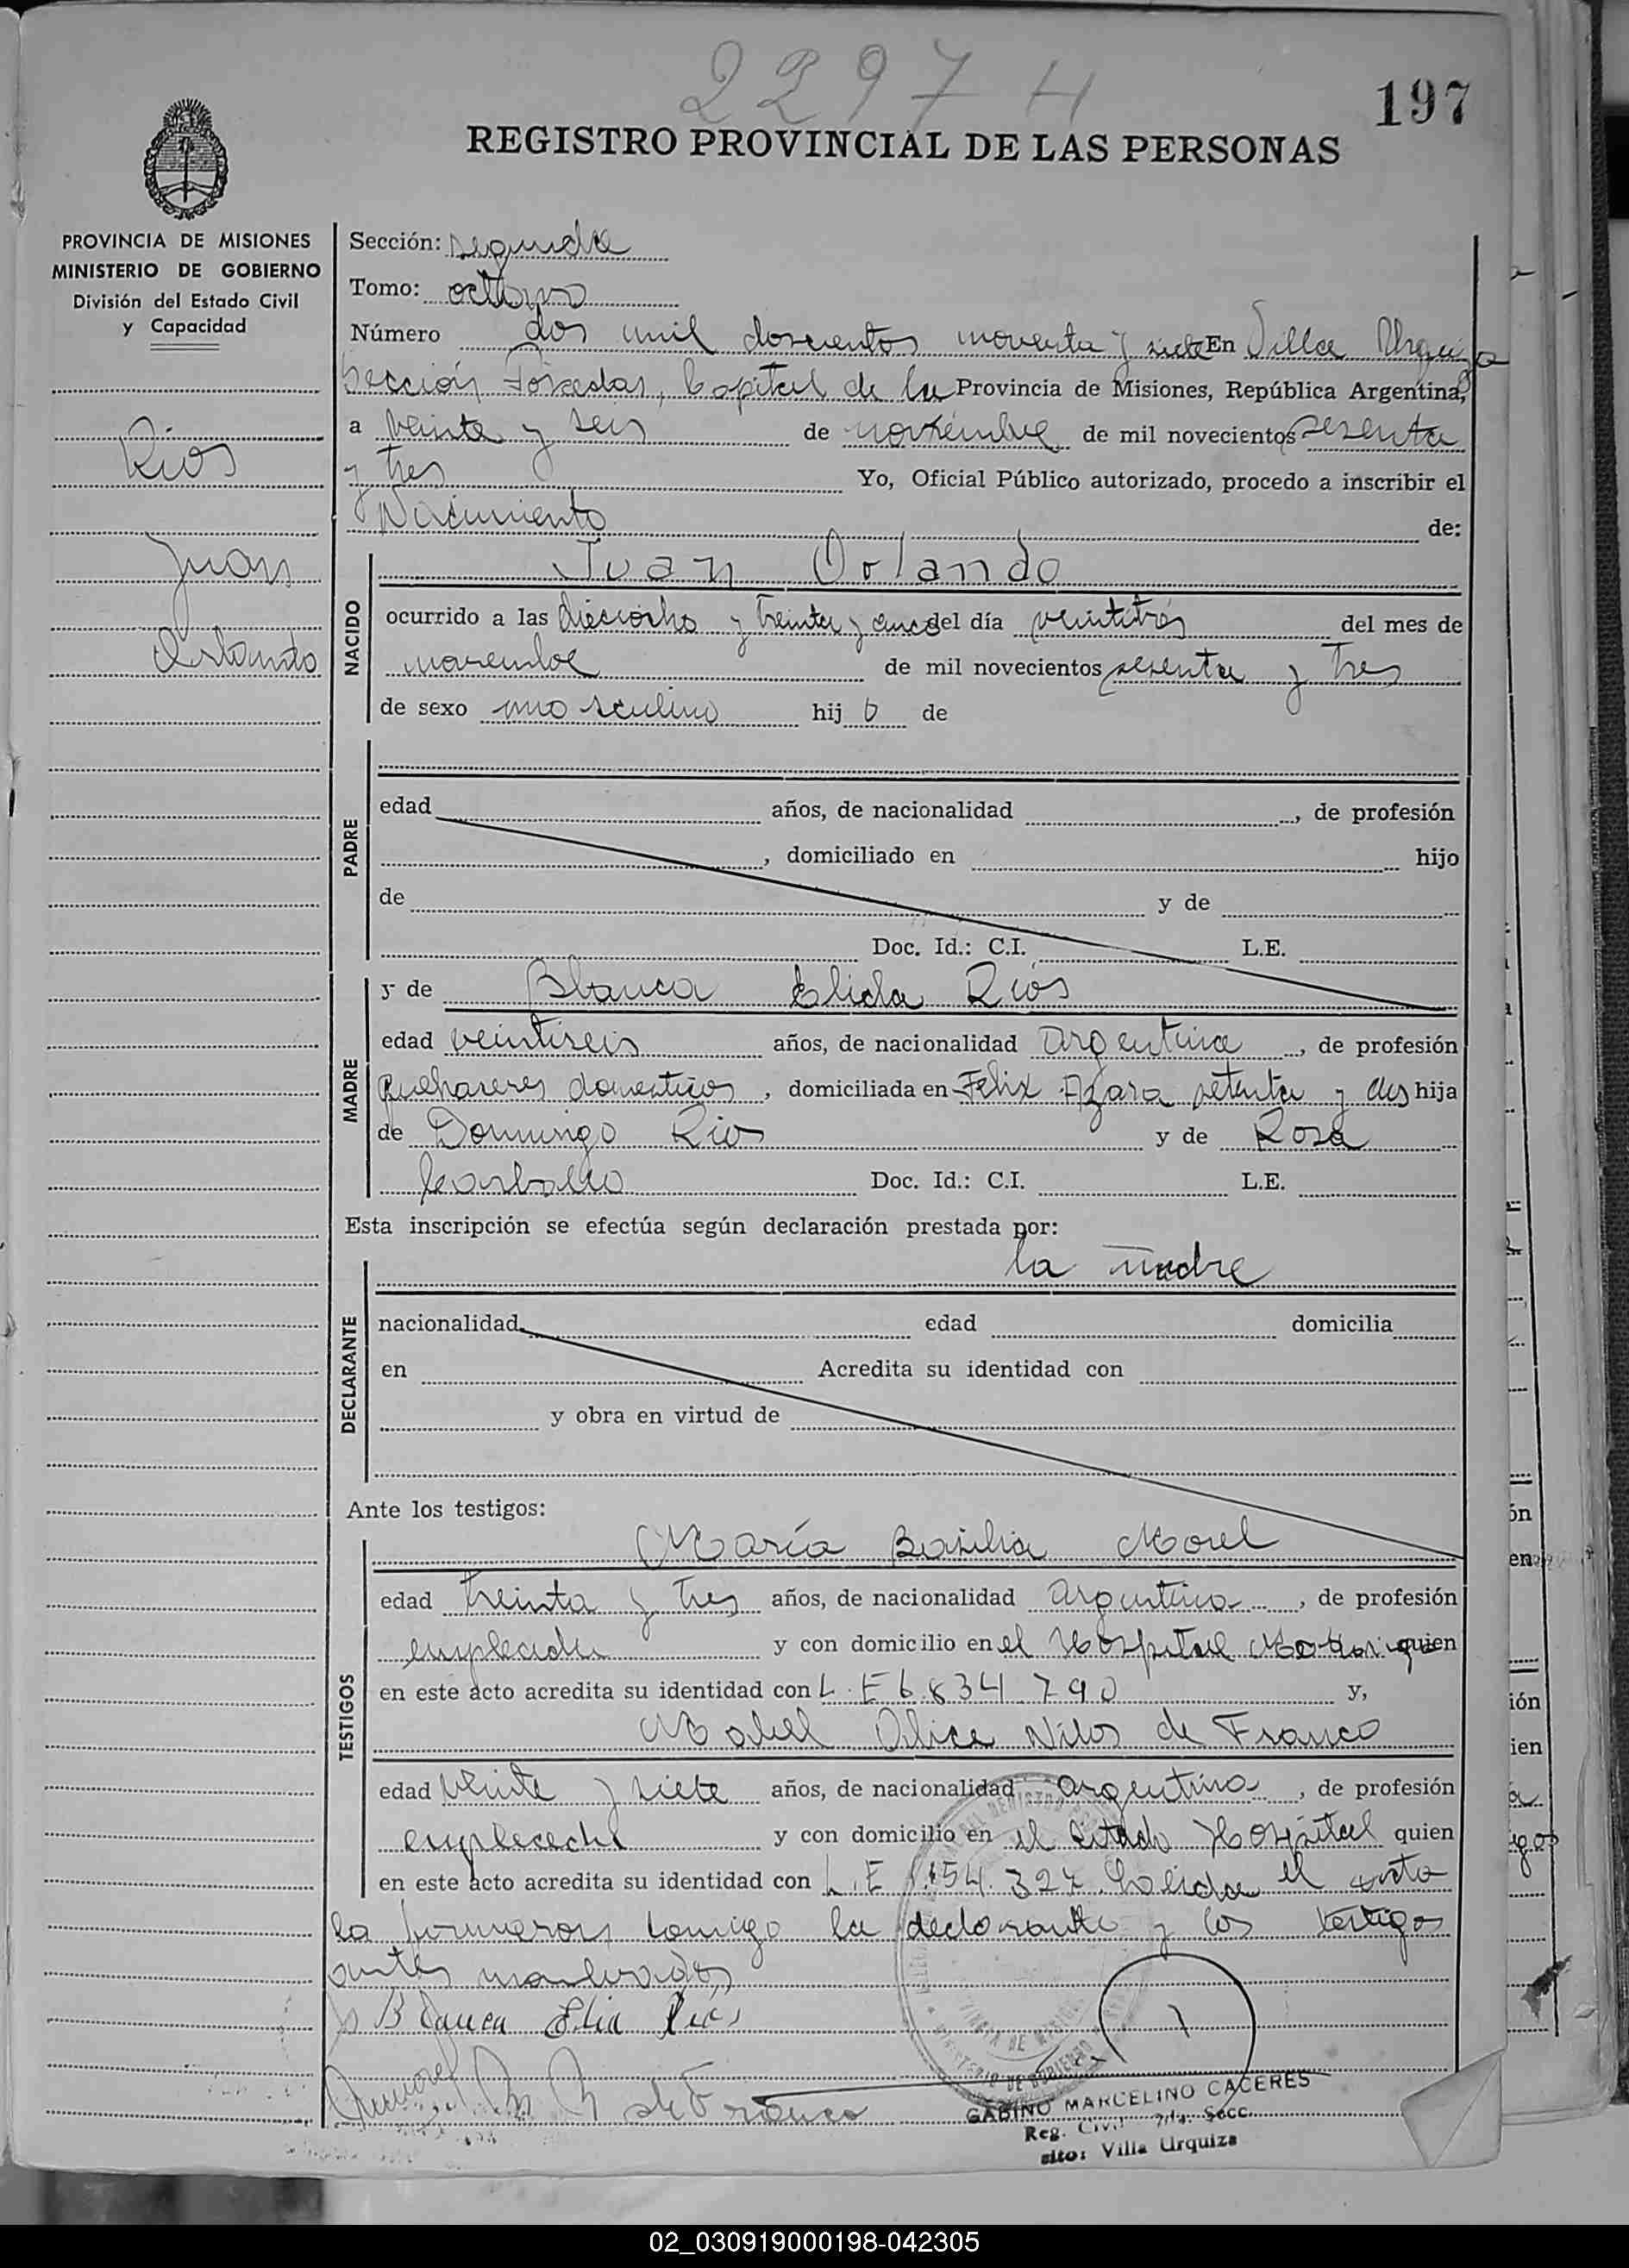 2297 H
197
REGISTRO PROVINCIAL DE LAS PERSONAS
PROVINCIA DE MISIONES
MINISTERIO DE GOBIERNO
División del Estado Civil
y Capacidad
Rios
Juan
Orlando
Sección: segunda
Tomo: octavo
Número dos mil doscientos noventa y siete En Villa Urquiza
Sección Posadas, Capital de la Provincia de Misiones, República Argentina,
a veinte y seis de noviembre de mil novecientos sesenta
y tres Yo, Oficial Público autorizado, procedo a inscribir el
Nacimiento de:
NACIDO
Juan Orlando
ocurrido a las dieciocho y treinta y cinco del día veintitrés del mes de
noviembre de mil novecientos sesenta y tres
de sexo masculino hij o de
PADRE
edad años, de nacionalidad , de profesión
, domiciliado en hijo
de y de
Doc. Id.: C.I. L.E.
MADRE
y de Blanca Elida Rios
edad veintiseis años, de nacionalidad argentina , de profesión
quehaceres domesticos , domiciliada en Felix Azara setenta y dos hija
de Domingo Rios y de Rosa
Carballo Doc. Id.: C.I. L.E.
Esta inscripción se efectúa según declaración prestada por:
la madre
DECLARANTE
nacionalidad edad domicilia
en Acredita su identidad con
y obra en virtud de
Ante los testigos:
TESTIGOS
María Basilia Morel
edad treinta y tres años, de nacionalidad argentina , de profesión
empleada y con domicilio en el Hospital quien
en este acto acredita su identidad con L.E 6.834.790 y,
Mabel Alice de Franco
edad veinte y siete años, de nacionalidad argentina , de profesión
empleada y con domicilio en el citado Hospital quien
en este acto acredita su identidad con L.E Leida el acta
la firmaron conmigo la declarante y los testigos
antes nombrados
Blanca Elia Rios
de Franco
GABINO MARCELINO CACERES
Reg. Civil 2da. Secc.
sito: Villa Urquiza
02_030919000198-042305